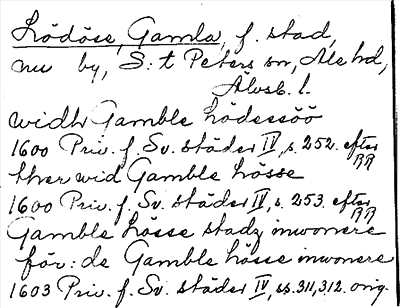 Lödöse, Gamla, f. stad,
nu by, S:t Peters sn, Ale hd,
Älvsb. l.
widh Gamble Lödessöö
1600 Priv. f. Sv. städer IV, s. 252. efter RR
ther wid Gamble Lösse
1600 Priv. f. Sv. städer IV, s. 253. efter RR
Gamble Lösse stadz inwonere
för: de Gamble Lösse inwonere
1603 Priv. f. Sv. städer IV, ss. 311, 312. orig.